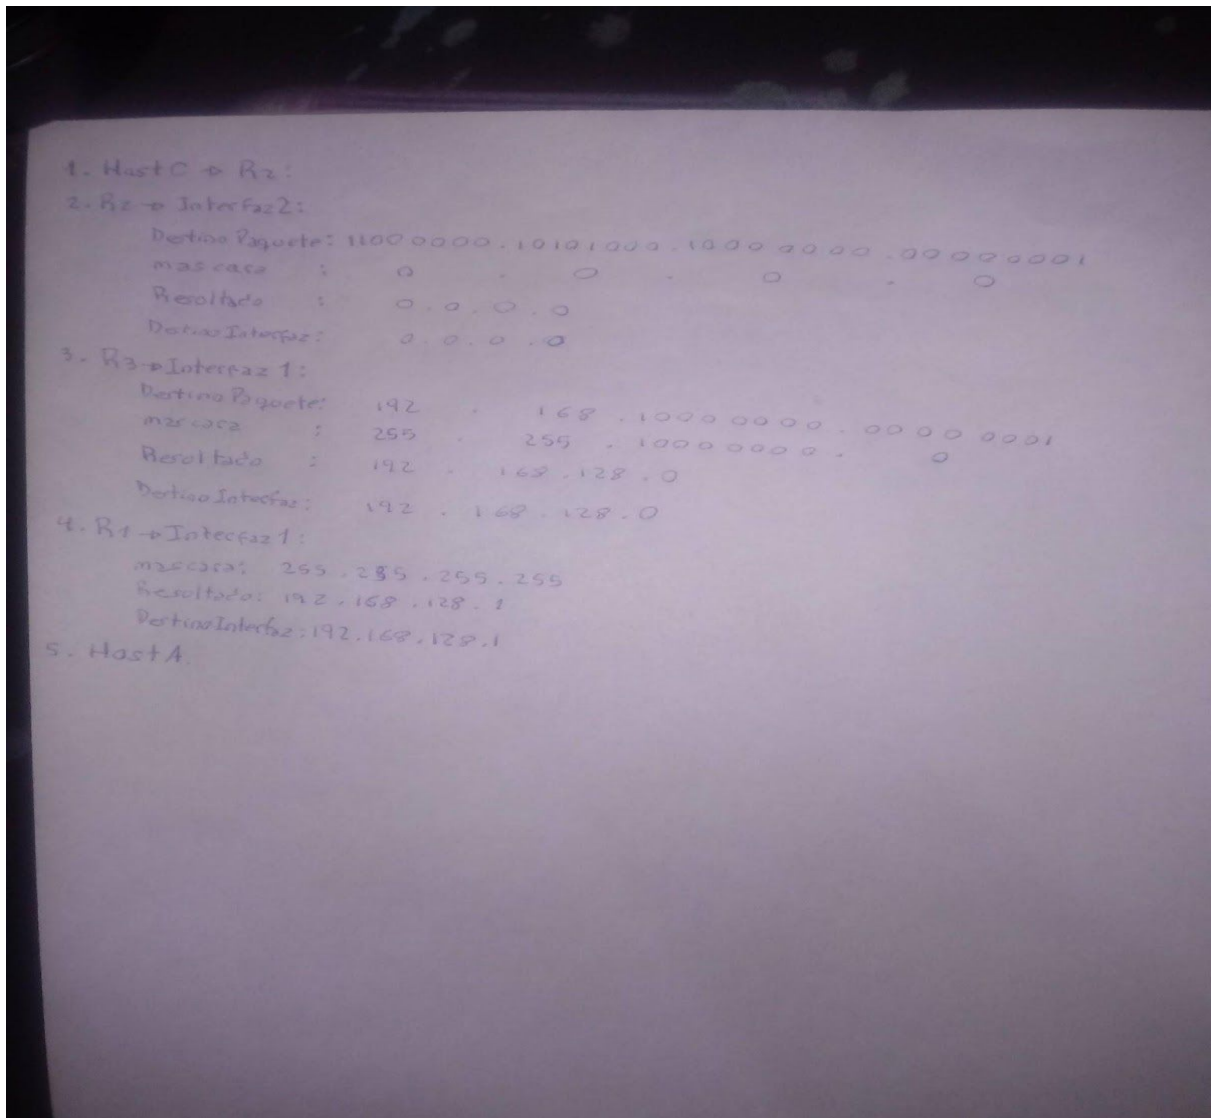 1. Host C → R2:
2. R2 → Interfaz 2:
Destino Paquete: 11000000.10101000.10000000.00000001
mascara : 0 . 0 . 0 . 0
Resultado : 0.0.0.0
Destino Interfaz: 0.0.0.0
3. R3 → Interfaz 1:
Destino Paquete: 192 . 168 .10000000.00000001
mascara : 255 . 255 .10000000. 0
Resultado : 192 . 168.128.0
Destino Interfaz: 192 . 168.128.0
4. R1 → Interfaz 1:
mascara: 255.255.255.255
Resultado: 192.168.128.1
Destino Interfaz: 192.168.128.1
5. Host A.